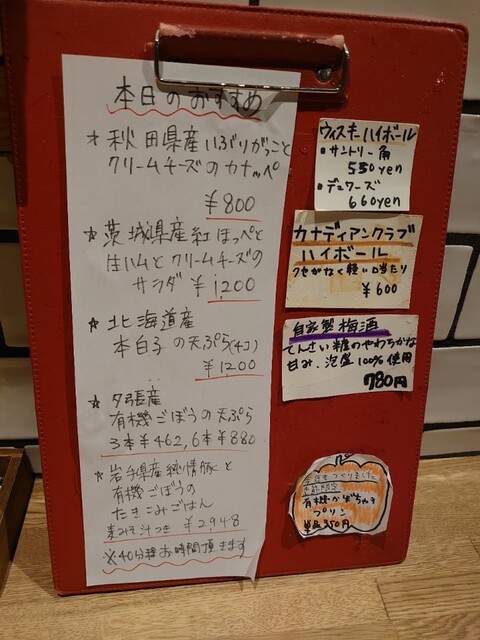 本日のおすすめ
☆秋田県産いぶりがっこと
クリームチーズのカナッペ
¥800
☆茨城県産紅ほっぺと
生ハムとクリームチーズの
サラダ ¥1,200
☆北海道産
本白子の天ぷら(4コ)
¥1200
☆夕張産
有機ごぼうの天ぷら
3本¥462,6本¥880
☆岩手県産純情豚と
有機ごぼうの
たきこみごはん
麦みそ汁つき ¥2948
※40分程お時間頂きます
ウィスキーハイボール
・サントリー角
550yen
・デュワーズ
660yen
カナディアンクラブ
ハイボール
クセがなく軽い口当たり
¥600
自家製梅酒
てんさい糖のやわらかな
甘み、泡盛100%使用
780円
今年もつくりました
季節限定
有機かぼちゃの
プリン
350円